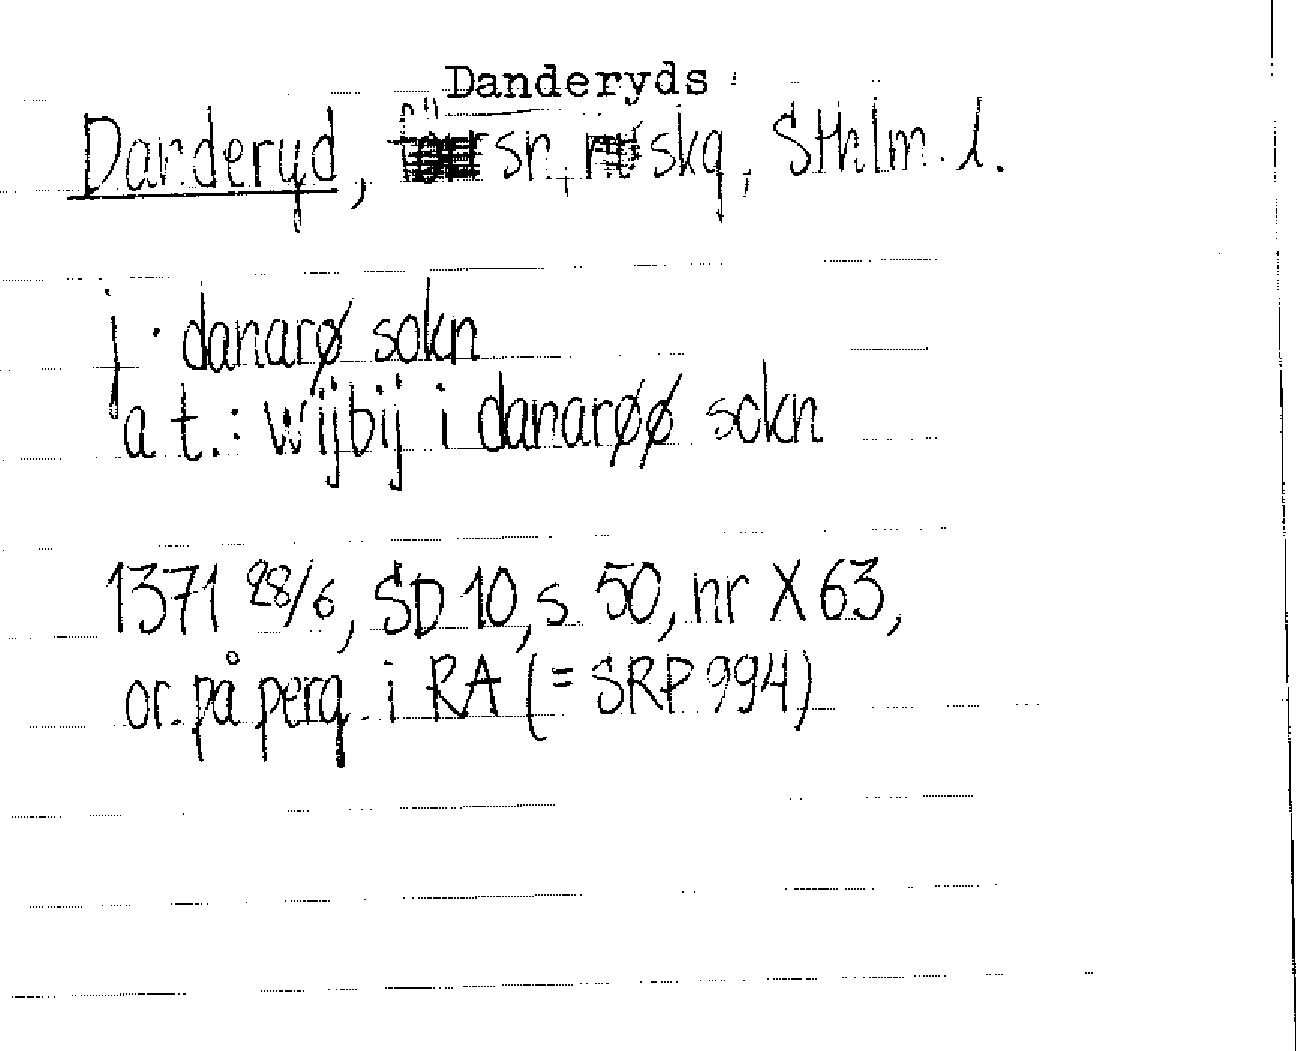 Danderyds
Danderyd, sn, skg, Sthlm. l.
j · danarø sokn
a t.: wijbij i danarøø sokn
1371 28/6, SD 10, s 50, nr X 63,
or. på perg i RA (= SRP 994)